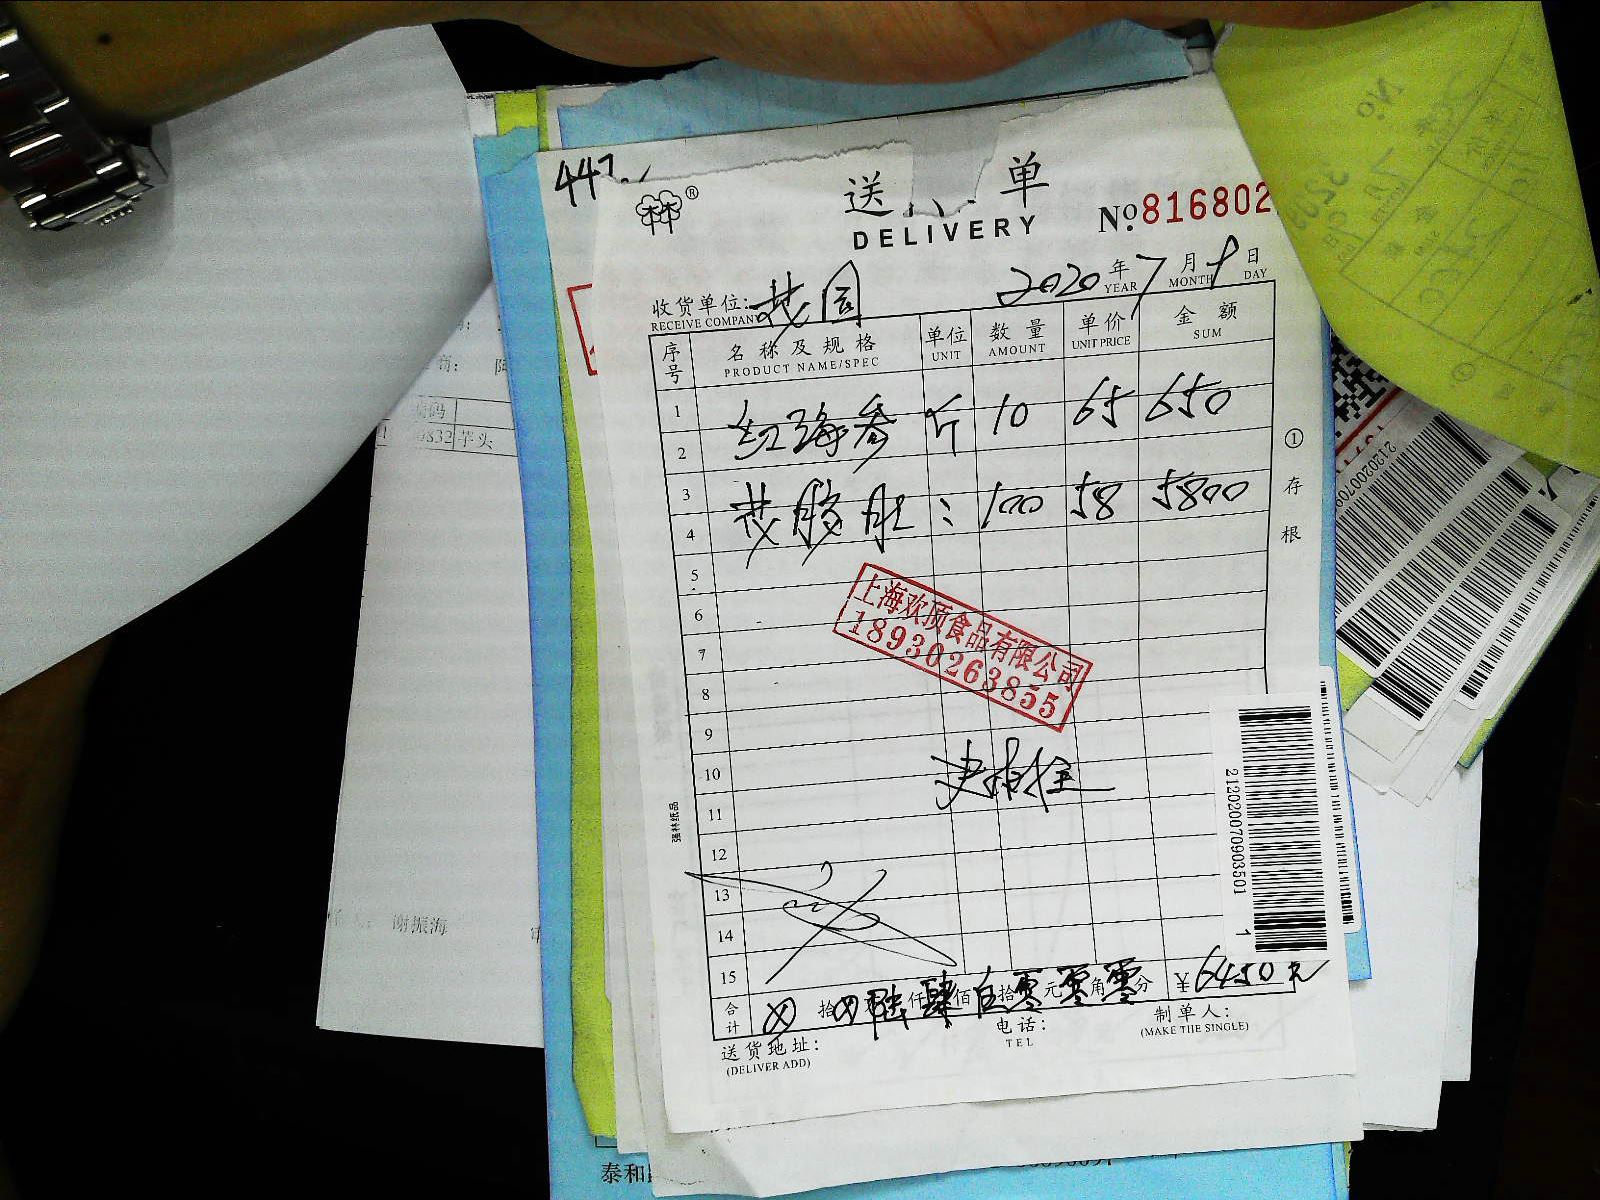 447.
®
送 单
DELIVERY
No.816802
收货单位: 茂园
RECEIVE COMPANY
2020年7月9日
YEAR MONTH DAY
序号 名称及规格 单位 数量 单价 金额
PRODUCT NAME/SPEC UNIT AMOUNT UNIT PRICE SUM
1
红海参 斤 10 65 650
2
3
花胶肚 : 100 58 5800
4
5
6
7
8
9
10
11
12
13
14
15
① 存根
上海欢顶食品有限公司
18930263855
强林纸品
212020070903501
1
合计 拾 陆仟肆佰 拾零元零角零分 ¥6450元
送货地址:
(DELIVER ADD)
电话:
TEL
制单人:
(MAKE THE SINGLE)
0832 芋头
谢振海
泰和
2120200709